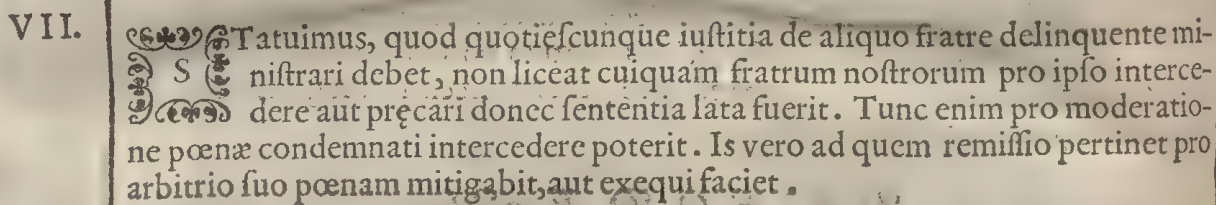 VII. STatuimus, quod quotieſcunque iuſtitia de aliquo fratre delinquente mi-
niſtrari debet, non liceat cuiquam fratrum noſtrorum pro ipſo interce-
dere aut pręcari donec ſententia lata fuerit. Tunc enim pro moderatio-
ne pœnæ condemnati intercedere poterit. Is vero ad quem remiſſio pertinet pro
arbitrio ſuo pœnam mitigabit, aut exequi faciet.